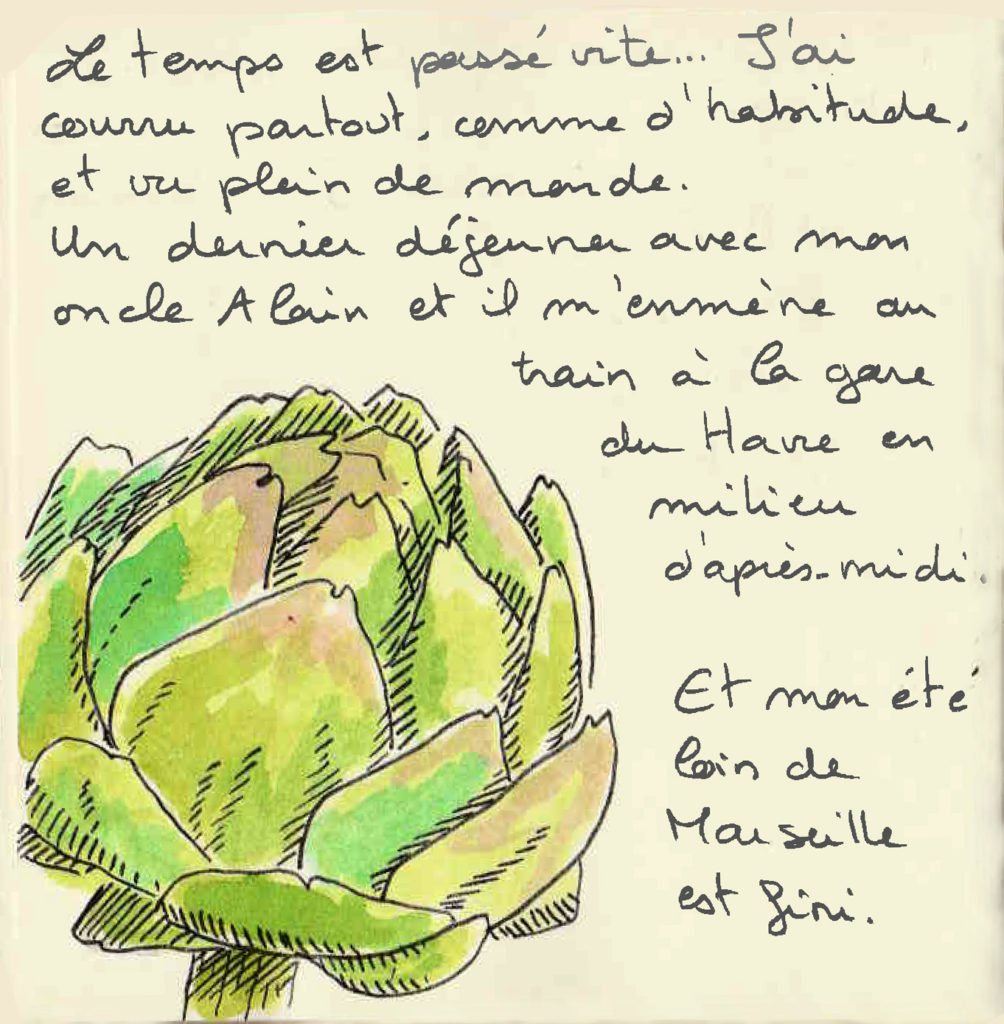 Le temps est passé vite... J'ai
courru partout, comme d'habitude,
et vu plein de monde.
Un dernier déjeuner avec mon
oncle Alain et il m'enmène au
train à la gare
du Havre en
milieu
d'après-midi.
Et mon été
loin de
Marseille
est fini.